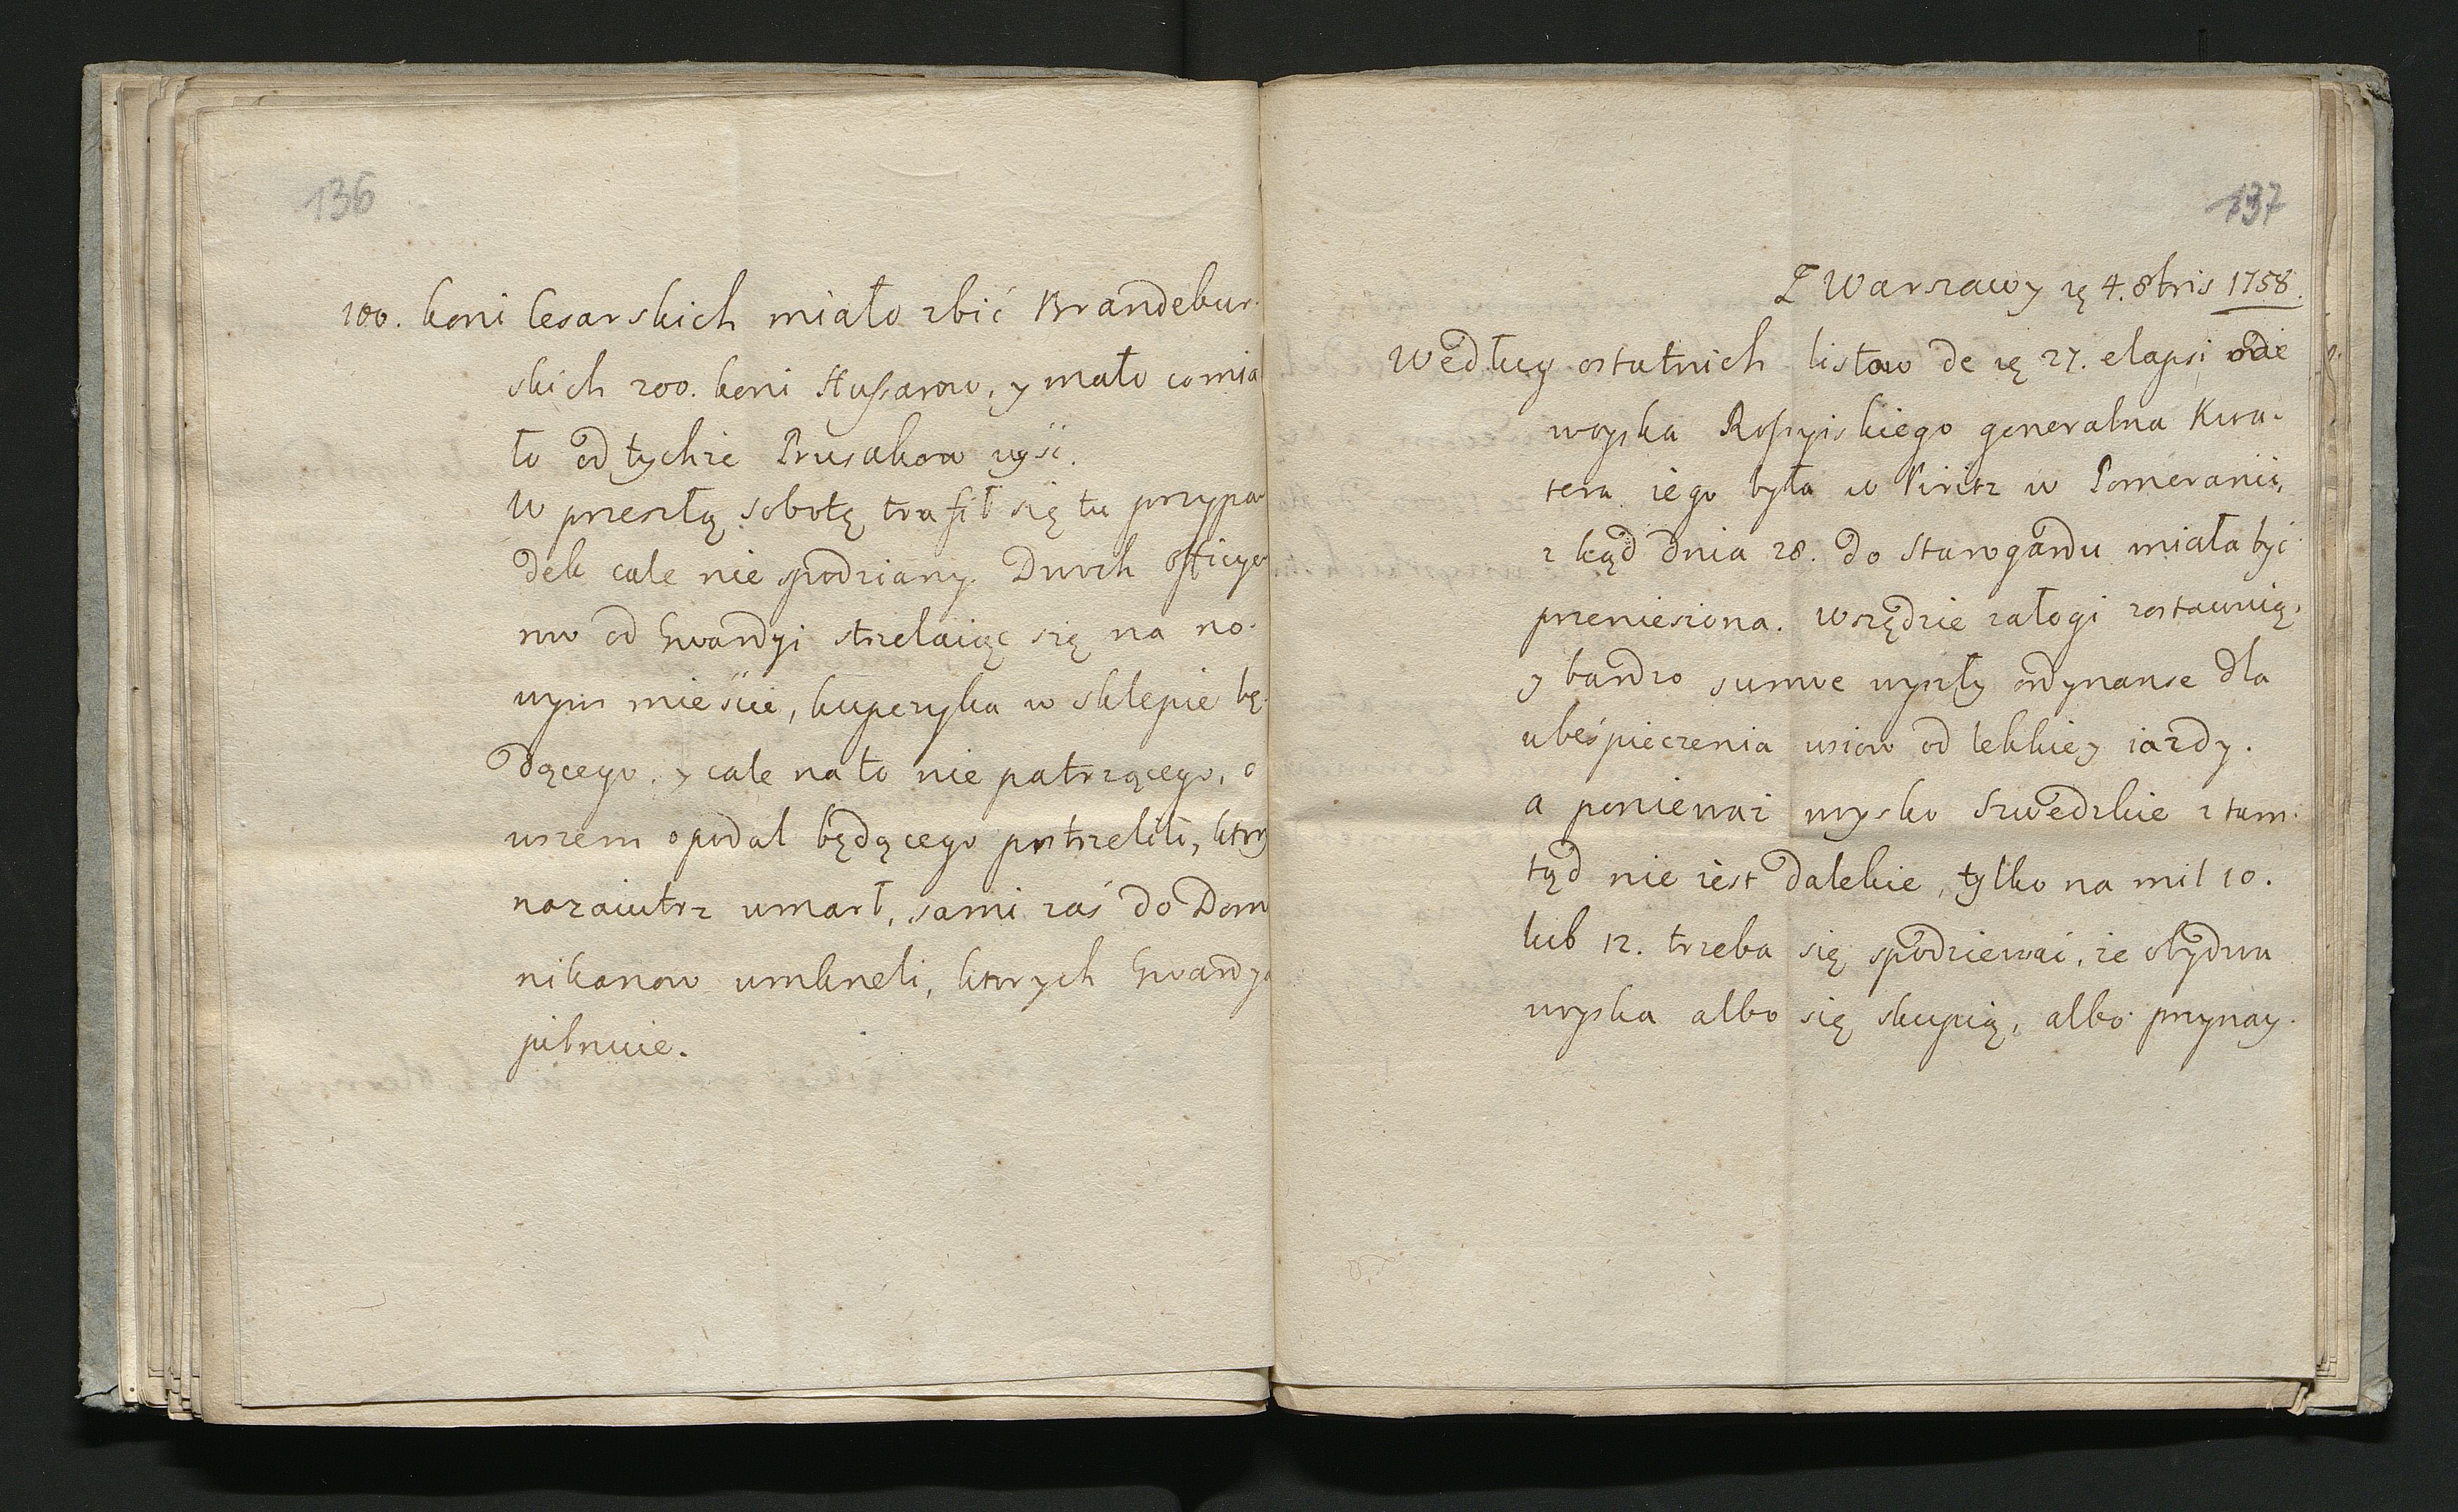 136
100. koni Cesarskich miało zbić Brandebur-
skich 200. koni Hussarow, y mało co mia
ło od tychże Prusakow uyść.
W przeszłą sobotę trafił się tu przypa-
dek cale nie spodziany. Dwoch officye
row od Gwardyi strzelaiąc się na no-
wym mieście, kupczyka w sklepie bę-
dącego, y cale na to nie patrzącego, o
wszem opodal będącego postrzelili, ktory
nazaiutrz umarł, sami zaś do Dom
nikanow umkneli, ktorych Gwardya
pilnuie.
137
Z Warszawy 4. 8bris 1758.
Według ostatnich listow de 27. elapsi ode
woyska Rossyiskiego generalna Kwa-
tera iego była w Piritz w Pomeranii,
z kąd dnia 28. do Starogardu miała być
przeniesiona. Wszędzie załogi zostawuią,
y bardzo surowe wyszły ordynanse dla
ubeśpieczenia wsiow od lekkiey iazdy.
a ponieważ woysko Szwedzkie z tam-
tąd nie iest dalekie, tylko na mil 10.
lub 12. trzeba się spodziewać, że obydwa
woyska albo się skupią, albo przynay-